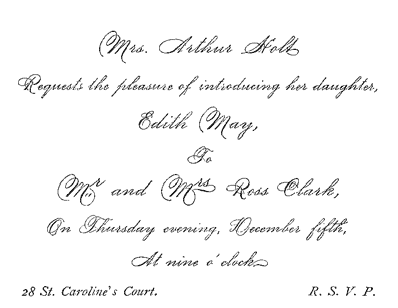 Mrs. Arthur Holt
Requests the pleasure of introducing her daughter,
Edith May,
To
Mr and Mrs Ross Clark,
On Thursday evening, December fifth,
At nine o'clock.
28 St. Caroline's Court. R. S. V. P.